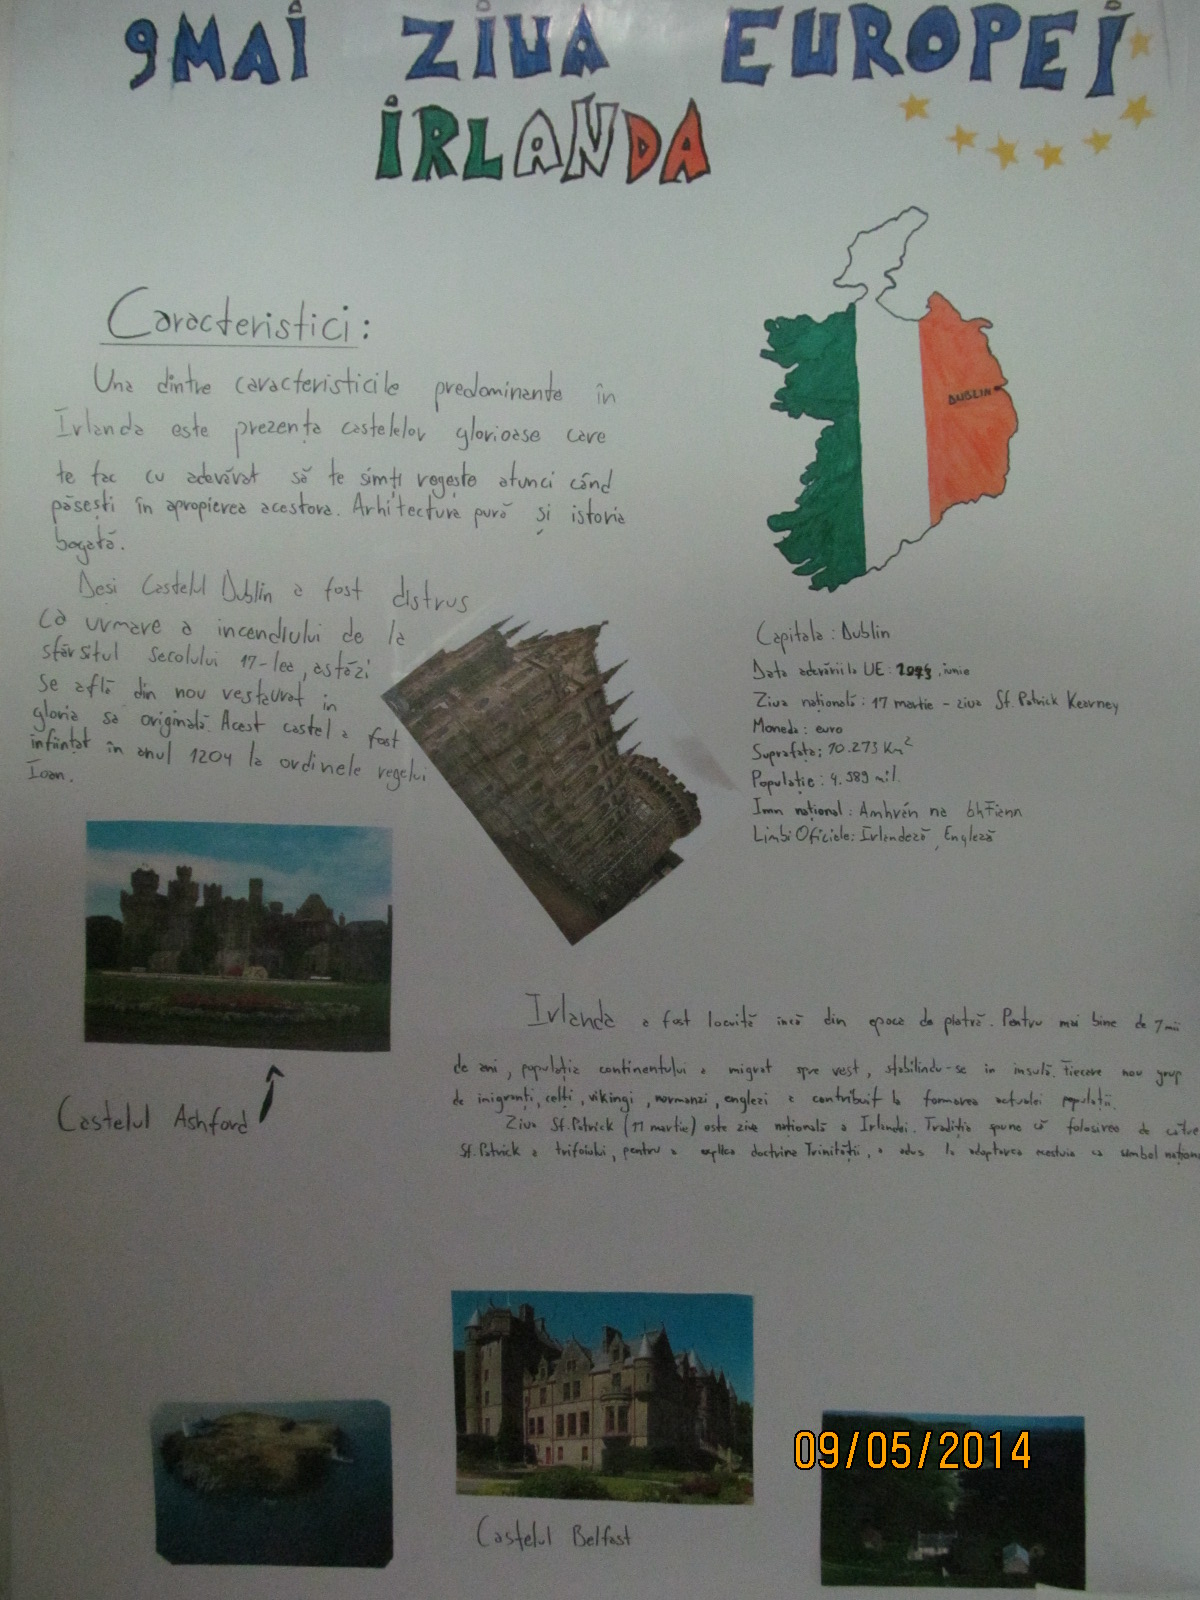 9 MAI ZIUA EUROPEI
IRLANDA
Caracteristici:
Una dintre caracteristicile predominante în
Irlanda este prezența castelelor glorioase care
te fac cu adevărat să te simți regește atunci când
pășești în apropierea acestora. Arhitectura pură și istoria
bogată.
Deși Castelul Dublin a fost distrus
ca urmare a incendiului de la
sfârșitul secolului 17-lea, astăzi
se află din nou restaurat in
gloria sa originală. Acest castel a fost
înființat în anul 1204 la ordinele regelui
Ioan.
DUBLIN
Capitala: Dublin
Data aderării la UE: 1973, iunie
Ziua națională: 17 martie - ziua Sf. Patrick Kearney
Moneda: euro
Suprafața: 70.273 Km²
Populație: 4.589 mil.
Imn național: Amhrén na bhFiann
Limbi Oficiale: Irlandeză, Engleză
Irlanda a fost locuită încă din epoca de piatră. Pentru mai bine de 7 mii
de ani, populația continentului a migrat spre vest, stabilindu-se in insulă. Fiecare nou grup
de imigranți, celți, vikingi, normanzi, englezi a contribuit la formarea actualei populații.
Ziua Sf. Patrick (17 martie) este ziua națională a Irlandei. Tradiția spune că folosirea de către
Sf. Patrick a trifoiului, pentru a explica doctrina Trinității, a dus la adoptarea acestuia ca simbol național
Castelul Ashford
Castelul Belfast
09/05/2014